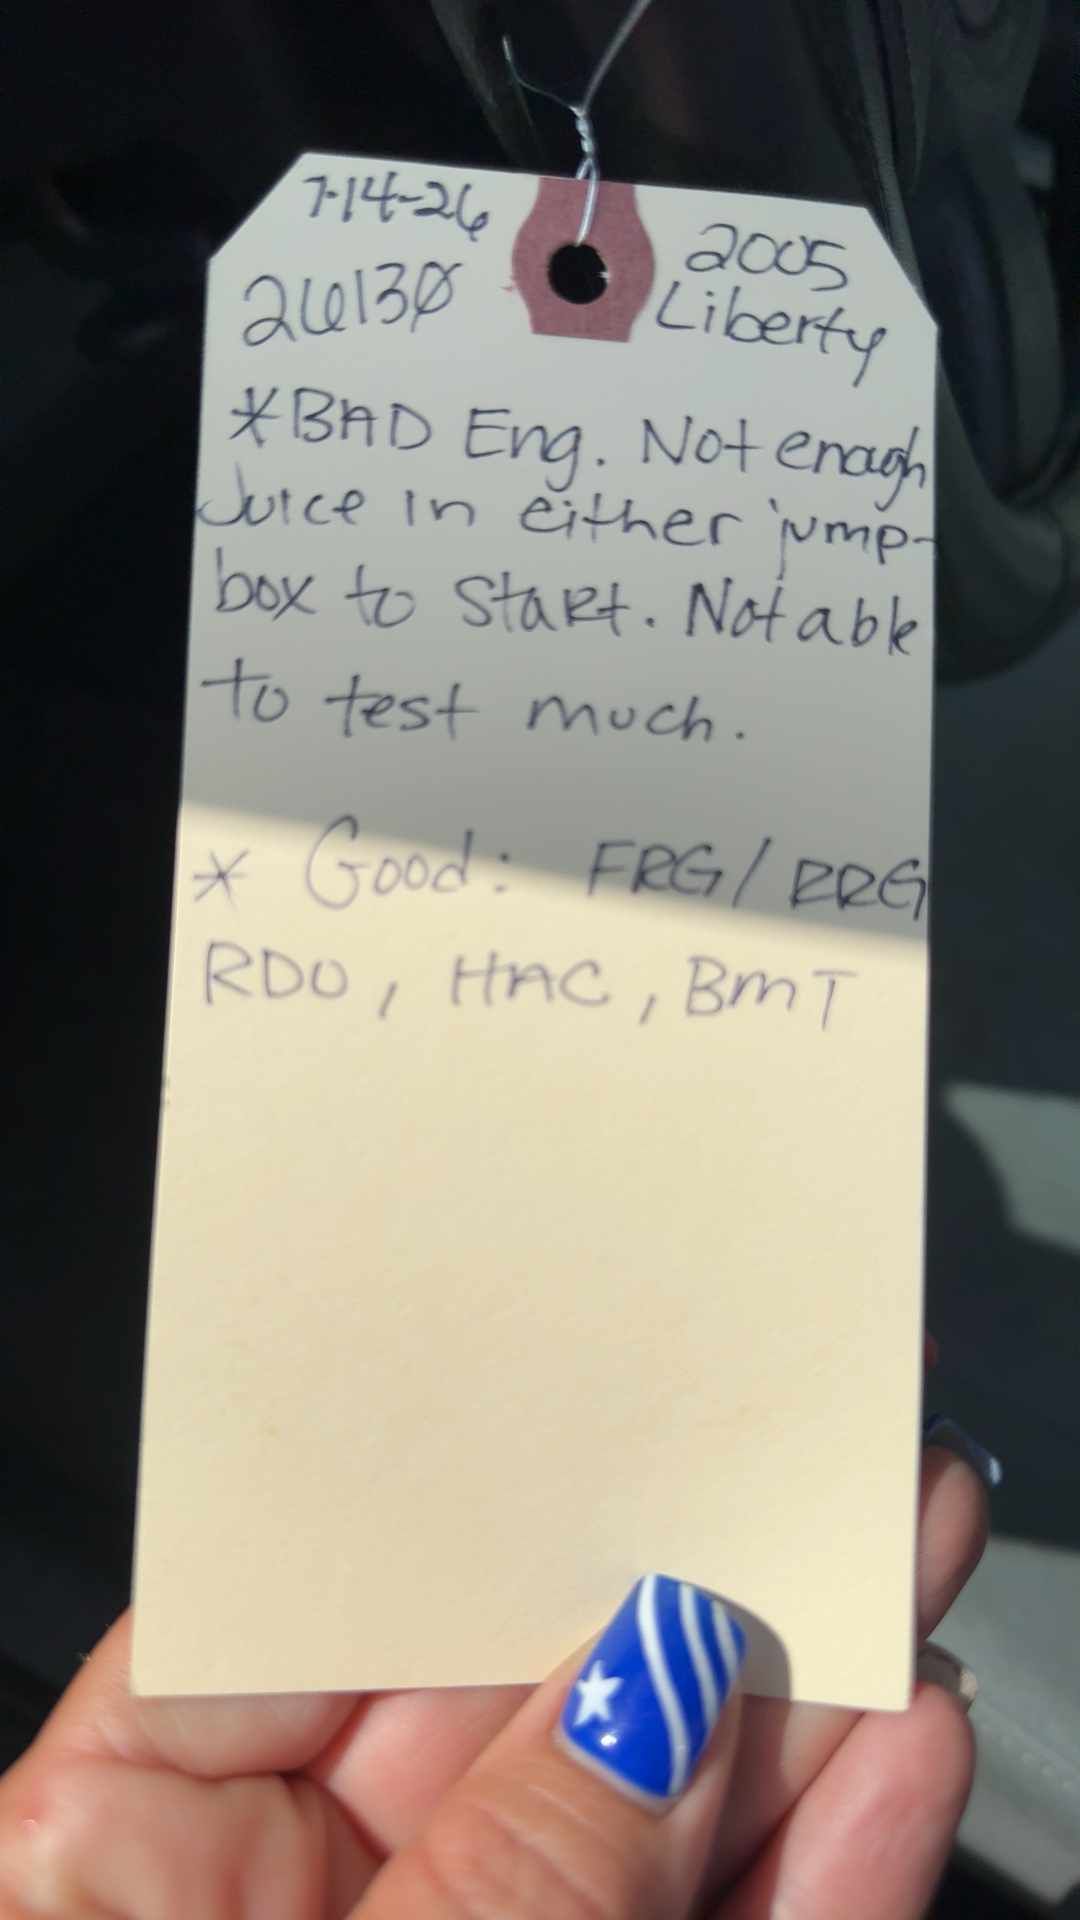 7-14-26
26130
2005
Liberty
*BAD Eng. Not enough
Juice in either jump-
box to start. Not able
to test much.
* Good: FRG/RRG
RDO, HAC, BMT